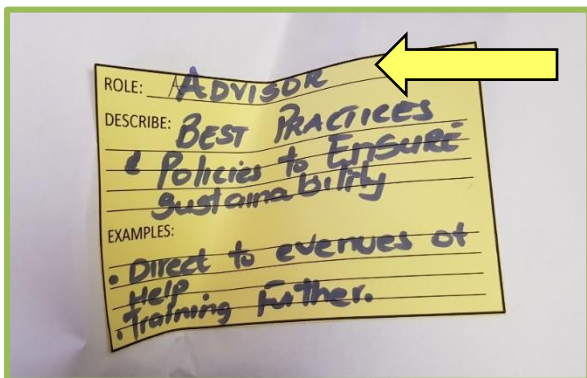 ROLE: ADVISOR
DESCRIBE: BEST PRACTICES
& Policies to ENSURE
sustainability
EXAMPLES:
• Direct to evenues of
Help
• Training Further.